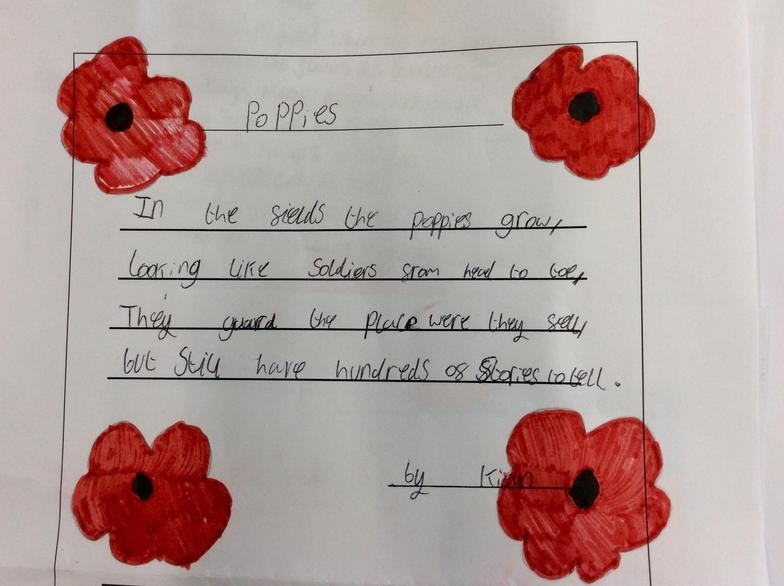 Poppies
In the fields the poppies grow,
looking like Soldiers from head to toe,
They guard the place were they fell,
but Still have hundreds of Stories to tell.
by Kiran